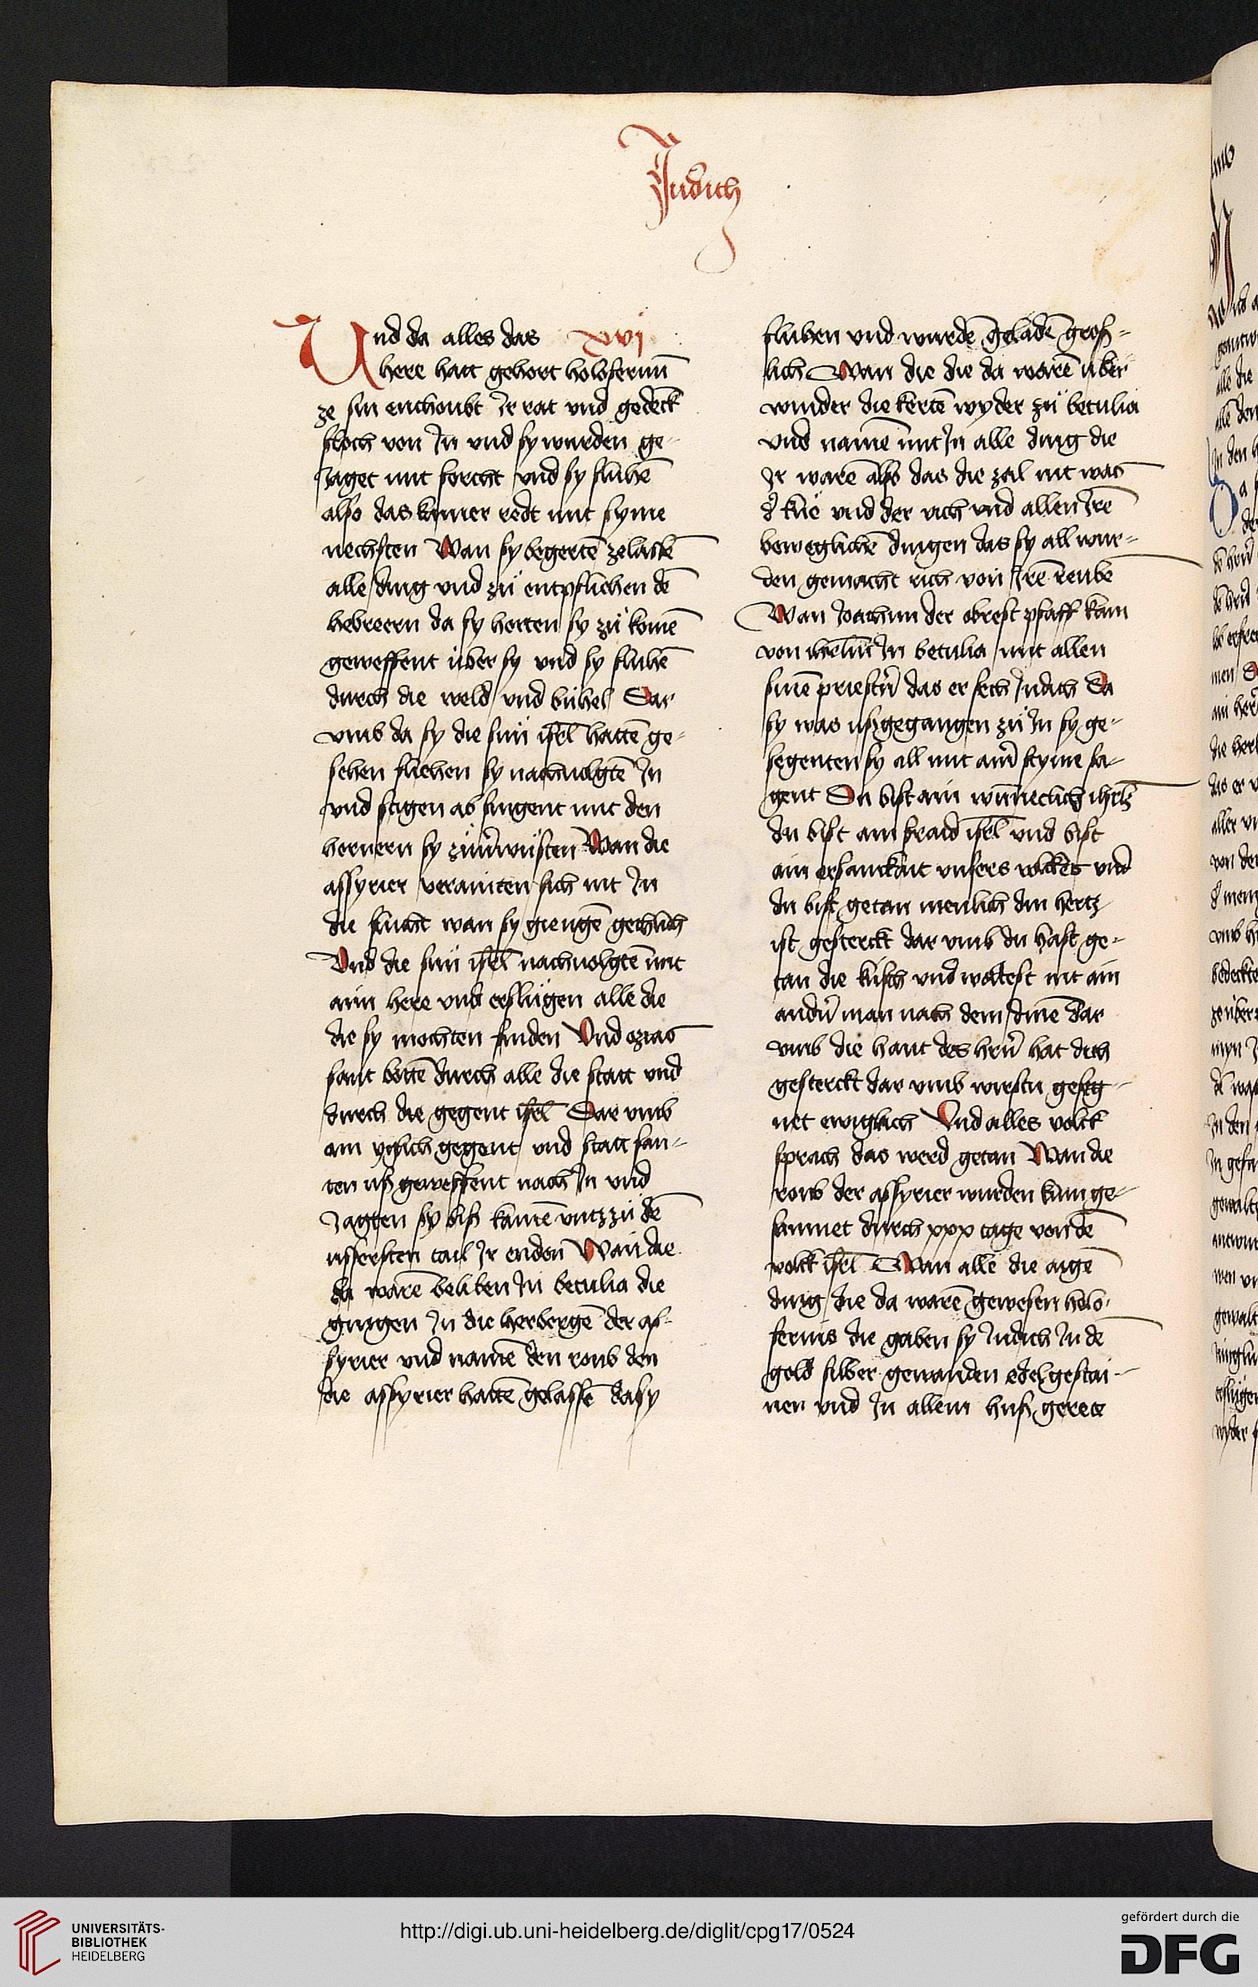 Judith
Vnd da alles das xvj
here hatt gehort holofernū
ze sin enthoubt Ir rat vnd gedēck
floch von In vnd sy wurden ge-
Jaget mit forcht vnd sy fluhē
also das kainer redt mit syme
nechsten Wan sy begertē zelassē
alle ding vnd zů entpfliehen dē
hebreern da sy horten sy zů komē
geweffent über sy vnd sy fluhē
durch die weld vnd bühel Dar
vmb da sy die sun isrl hattē ge-
sehen fliehen sy nachuolgtē In
vnd stigen ab singent mit den
hornern sy Wan die
assyrier verainten sich nit In
die flucht wan sy giengē gechlich
Vnd die sun isrl nachuolgtē mit
aim here vnd erslügen alle die
die sy mochten finden Vnd ozias
sant bottē durch alle die statt vnd
durch die gegent isrl Dar vmb
ain yglich gegent vnd statt san-
ten uß geweffent nach In vnd
Jagten sy biß kamē vntz zů dē
ussersten tail Ir enden Wan die
da warē beliben In betulia die
gingen In die herbergē der as-
syrier vnd namē den roub den
die assyrier hattē gelassē da sy
fluhen vnd wurdē geladē groß-
lich Wan die die da warē über
winder die kertē wyder zů betulia
vnd namē mit In alle ding die
Ir warē also das die zal nit was
d' kue vnd der vich vnd allen Irē
beweglichē dingen das sy all wur-
den gemacht rich von Irē reube
Wan Joachim der obrest pfaff kam
von iherlm In betulia mit allen
sinē priestern das er sech Judith Da
sy was ußgegangen zů In sy ge-
segenten sy all mit ainer styme sa-
gent Du bist ain wunneclich iherlm
du bist ain fraid isrl vnd bist
ain ersamkait vnsers volckes vnd
du bist getan menlich din hertz
ist gesterckt dar vmb du hast ge-
tan die küsch vnd woltest nit ain
andern man nach dem dinē dar
vmb die hant des hern hat dich
gesterckt dar vmb wirstu geseg-
net ewiglich Vnd alles volck
sprach das werd getan Wan die
roub der assyrier wurden kum ge-
samnet durch xxx tage von dē
volck isrl Wan alle die aigē
ding die da warē gewesen holo-
fernis die gaben sy Judith In dē
gold silber gewanden edelgestai-
nen vnd In allem huß gerett
UNIVERSITÄTS-
BIBLIOTHEK
HEIDELBERG
http://digi.ub.uni-heidelberg.de/diglit/cpg17/0524
gefördert durch die
DFG